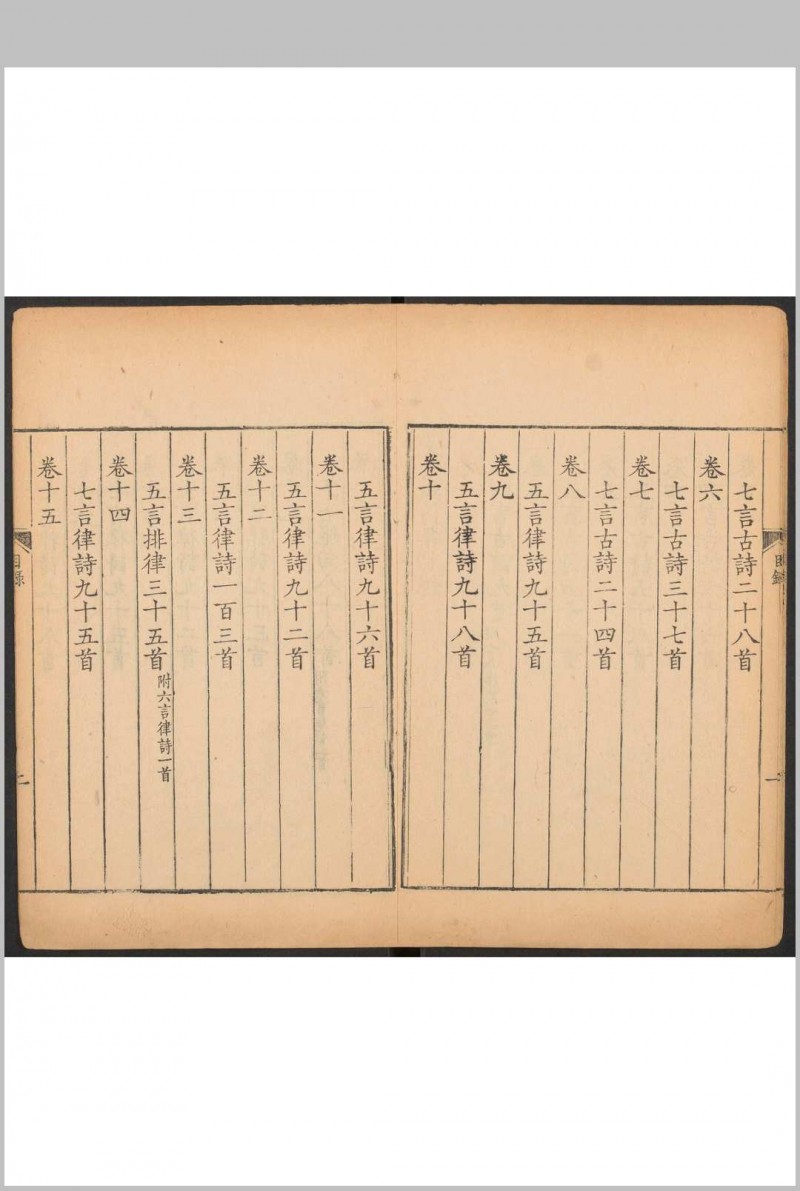 七言古詩二十八首
卷六
七言古詩三十七首
卷七
七言古詩二十四首
卷八
五言律詩九十五首
卷九
五言律詩九十八首
卷十
五言律詩九十六首
卷十一
五言律詩九十二首
卷十二
五言律詩一百三首
卷十三
五言排律三十五首 附六言律詩一首
卷十四
七言律詩九十五首
卷十五
目錄